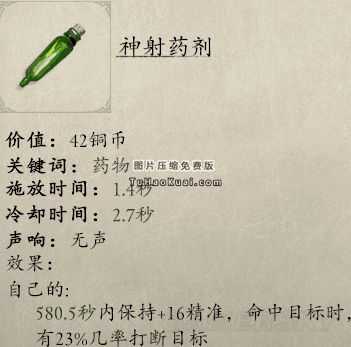 神射药剂
价值：42铜币
关键词：药物
图片压缩免费版
TuHaoKuai.com
施放时间：1.4秒
冷却时间：2.7秒
声响：无声
效果：
自己的：
580.5秒内保持+16精准，命中目标时，
有23%几率打断目标